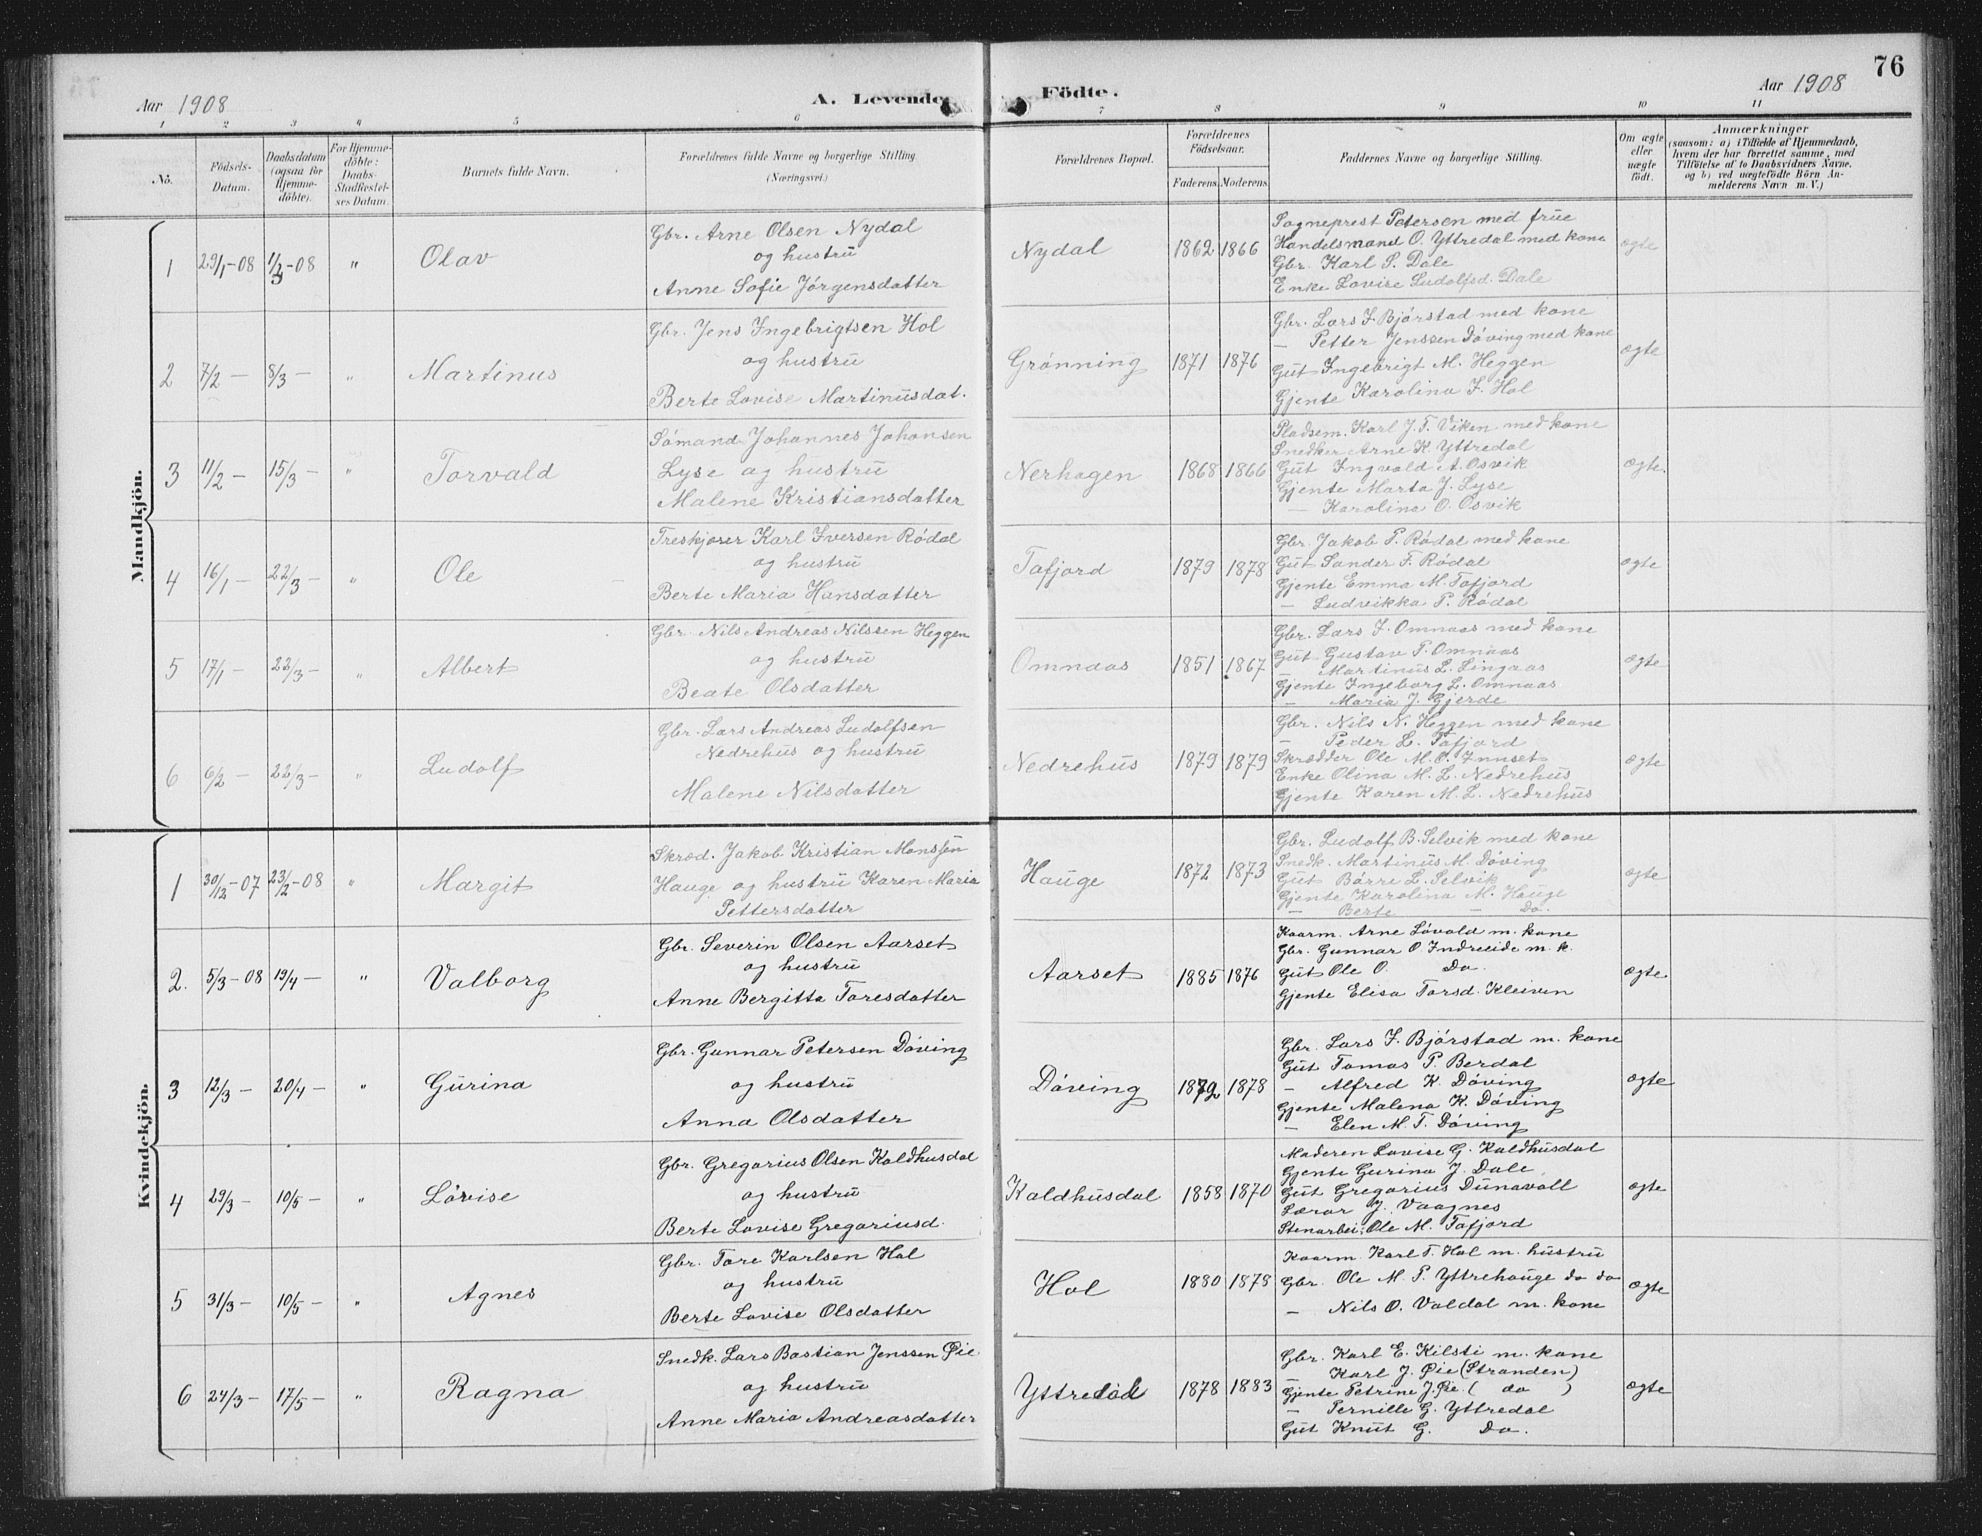 76
Aar 1908 A. Levende Födte. Aar 1908
1 2 3 4 5 6 7 8 9 10 11
No.
Födsels-Datum.
Daabsdatum (ogsaa for Hjemme-döbte).
For Hjemme-döbte: Daabs-Stadfæstel-ses Datum.
Barnets fulde Navn.
Forældrenes fulde Navne og borgerlige Stilling (Næringsvei.)
Forældrenes Bopæl.
Forældrenes Födselsaar.
Faderens. Moderens.
Faddernes Navne og borgerlige Stilling.
Om ægte eller uægte födt.
Anmærkninger
(saasom: a) i Tilfælde af Hjemmedaab,
hvem der har forrettet samme, med
Tilföielse af to Daabsvidners Navne,
og b) ved uægtefödte Börn An-
melderens Navn m. V.)
Mandkjön.
1 29/1-08 1/3-08 " Olav
Gbr. Arne Olsen Nydal
og hustru
Anne Sofie Jörgensdatter
Nydal 1862 1866
Sogneprest Petersen med frue
Handelsmand O. Yttredal med kone
Gbr. Karl P. Dale
Enke Lovise Ludolfsd. Dale
ægte
2 7/2 — 8/3 — " Martinus
Gbr. Jens Ingebrigtsen Hol
og hustru
Berte Lovise Martinusdat.
Grönning 1871 1876
Gbr. Lars I. Bjørstad med kone
— Petter Jenssen Döving med kone
Gut Ingebrigt M. Heggen
Gjente Karolina I. Hol
ægte
3 11/2 — 15/3 — " Torvald
Sömand Johannes Johansen
Lyse og hustru
Malene Kristiansdatter
Nerhagen 1868 1866
Pladsem. Karl J. T. Viken med kone
Snedker Arne K. Yttredal
Gut Ingvald A. Osvik
Gjente Marta J. Lyse
— Karolina O. Osvik
ægte.
4 16/1 — 22/3 — " Ole
Treskjærer Karl Iversen Rödal
og hustru
Berte Maria Hansdatter
Tafjord 1879 1878
Gbr. Jakob P. Rödal med kone
Gut Sander F. Rödal
Gjente Emma M. Tafjord
— Ludvikka P. Rödal
ægte
5 17/1 — 22/3 — " Albert
Gbr. Nils Andreas Nilssen Heggen
og hustru
Beate Olsdatter
Omnaas 1851 1867
Gbr. Lars J. Omnaas med kone
Gut Gustav P. Omnaas
— Martinus L. Lingaas
Gjente Ingeborg L. Omnaas
— Maria J. Gjerde
ægte
6 6/2 — 22/3 — " Ludolf
Gbr. Lars Andreas Ludolfsen
Nedrehus og hustru
Malene Nilsdatter
Nedrehus 1879 1879
Gbr. Nils N. Heggen med kone
— Peder L. Tafjord
Skrædder Ole M. O. Innset
Enke Olina M. L. Nedrehus
Gjente Karen M. L. Nedrehus
ægte
Kvindekjön.
1 30/12-07 23/2-08 " Margit
Skræd. Jakob Kristian Monssen
Hauge og hustru Karen Maria
Pettersdatter
Hauge 1872 1873
Gbr. Ludolf B. Selvik med kone
Snedk. Martinus M. Döving
Gut Börre L. Selvik
Gjente Karolina M. Hauge
— Berte — Do.
ægte
2. 5/3-08 19/4 — " Valborg
Gbr. Severin Olsen Aarset
og hustru
Anne Bergitta Toresdatter
Aarset 1885 1876
Kaarm. Arne Lövold m. kone
Gbr. Gunnar O. Indreeide m. k.
Gut Ole O. Do.
Gjente Elisa Torsd. Kleiven
ægte
3 12/3 — 20/4 — " Gurina
Gbr. Gunnar Petersen Döving
og hustru
Anna Olsdatter
Döving 1872 1878
Gbr. Lars I. Bjørstad m. kone
Gut Tomas P. Berdal
— Alfred K. Döving
Gjente Malena K. Döving
— Elen M. T. Döving
ægte
4 29/3 — 10/5 — " Lövise
Gbr. Gregorius Olsen Kaldhusdal
og hustru
Berte Lovise Gregoriusd.
Kaldhusdal 1858 1870
Moderen Lovise G. Kaldhusdal
Gjente Gurina J. Dale
Gut Gregorius Dunavoll
Lærer J. Vaagnes
Stenarbei. Ole M. Tafjord
ægte
5 31/3 — 10/5 — " Agnes
Gbr. Tore Karlsen Hol
og hustru
Berte Lovise Olsdatter
Hol 1880 1878
Kaarm. Karl T. Hol m. hustru
Gbr. Ole M. P. Yttrehauge do do
— Nils O. Valdal m. kone
ægte
6 24/3 — 17/5 — " Ragna
Snedk. Lars Bastian Jenssen Øie
og hustru
Anne Maria Andreasdatter
Yttredal 1878 1883
Gbr. Karl E. Kilsti m. kone
— Karl J. Øie (Stranden)
Gjente Petrine J. Øie ( do )
— Pernille G. Yttredal
Gut Knut G. Do.
ægte